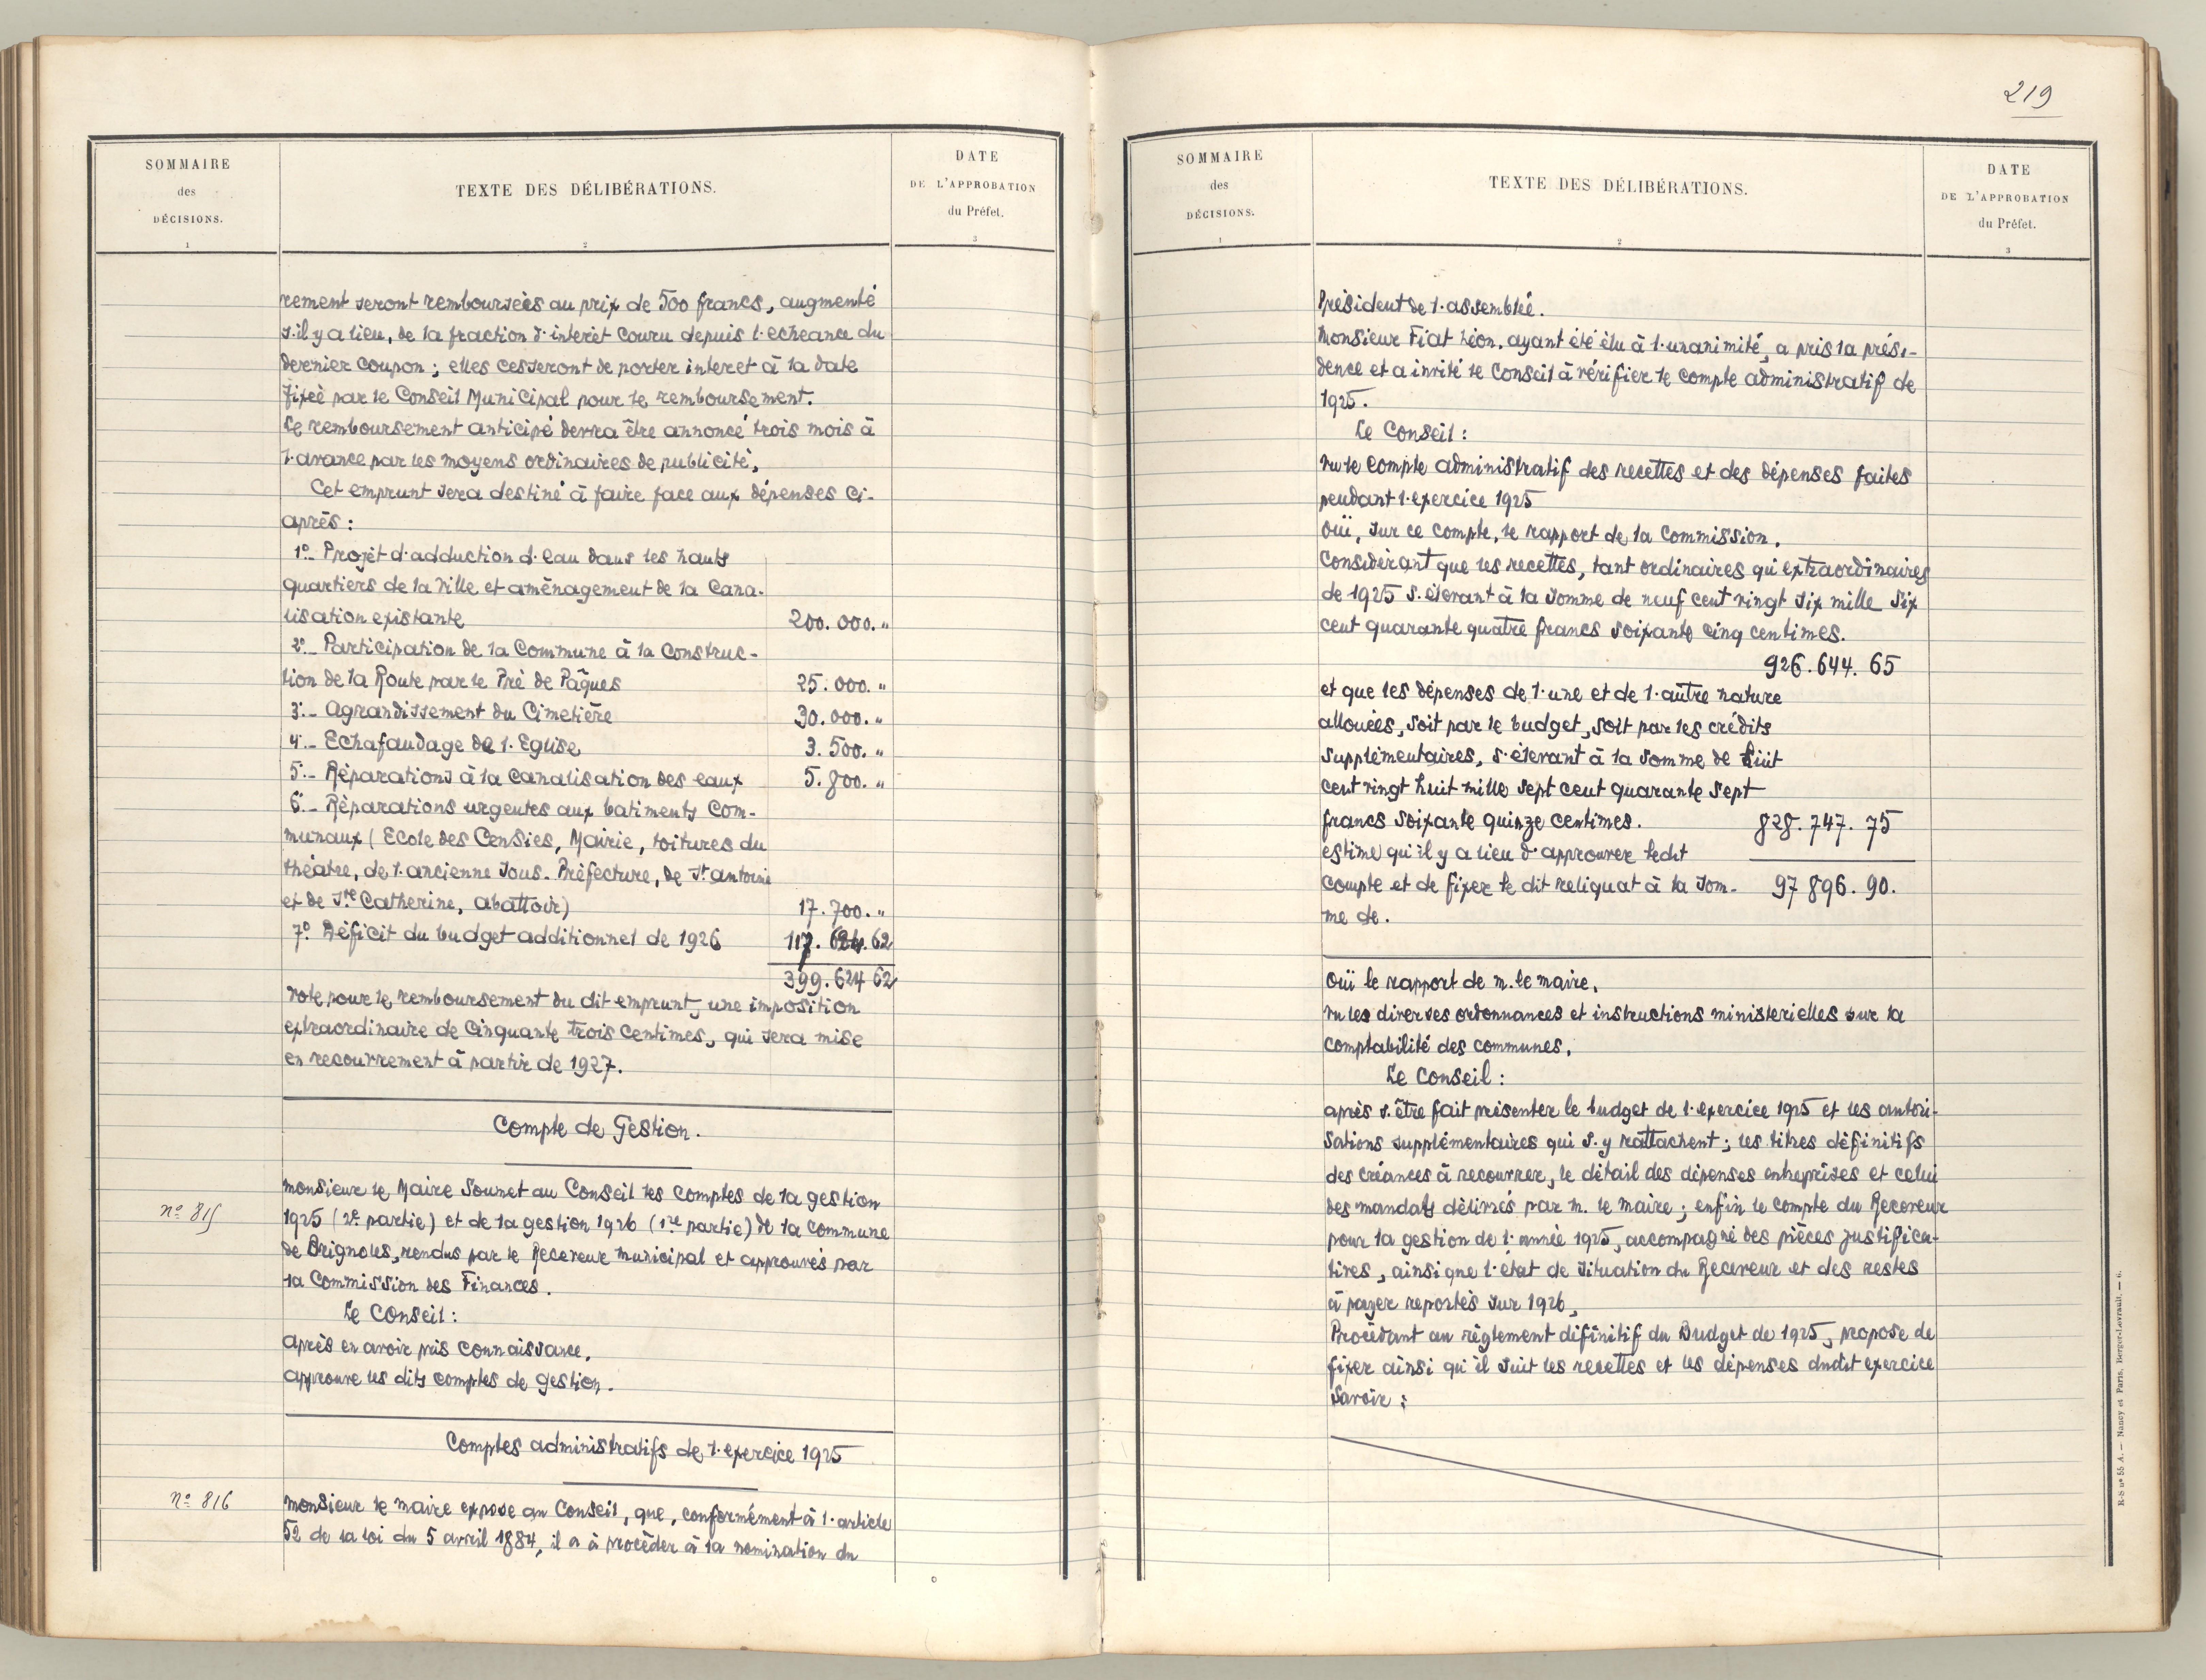 SOMMAIRE
des
DÉCISIONS.
1
TEXTE DES DÉLIBÉRATIONS.
2
DATE
DE L'APPROBATION
du Préfet.
3
rement seront remboursées au prix de 500 francs, augmenté
s'il y a lieu, de la fraction d'interêt couru depuis l'echeance du
dernier coupon ; elles cesseront de porter interet à la date
fixée par le Conseil Municipal pour le remboursement.
Le remboursement anticipé devra être annoncé trois mois à
l'avance par les moyens ordinaires de publicité,
Cet emprunt sera destiné à faire face aux dépenses ci-
après :
1º_ Projet d'adduction d'eau dans les hauts
quartiers de la Ville et aménagement de la Cana-
lisation existante 200.000. "
2º_ Participation de la Commune à la Construc-
tion de la Route par le Pré de Pâques 25.000. "
3º_ Agrandissement du Cimetière 30.000. "
4º_ Echafaudage de l'Eglise 3.500. "
5º_ Réparations à la canalisation des eaux 5.800. "
6º_ Réparations urgentes aux batiments Com-
munaux ( Ecole des Censies, Mairie, toitures du
théatre, de l'ancienne Sous-Préfecture, de St antoine
et de Ste Catherine, abattoir) 17.700. "
7º Déficit du budget additionnel de 1926 117.624.62
399.624 62
Vote pour le remboursement du dit emprunt, une imposition
extraordinaire de Cinquante trois Centimes, qui sera mise
en recouvrement à partir de 1927.
Compte de Gestion.
nº 815
Monsieur le Maire Soumet au Conseil les comptes de la gestion
1925 (2e partie) et de la gestion 1926 (1re partie) de la commune
de Brignoles, rendus par le Receveur municipal et approuvés par
la Commission des Finances.
Le Conseil :
après en avoir pris connaissance,
approuve les dits comptes de gestion.
Comptes administratifs de l'exercice 1925
nº 816
monsieur le maire expose au Conseil, que, conformément à l'article
52 de la loi du 5 avril 1884, il a à procéder à la nomination du
219
SOMMAIRE
des
DÉCISIONS.
1
TEXTE DES DÉLIBÉRATIONS.
2
DATE
DE L'APPROBATION
du Préfet.
3
Président de l'assemblée.
Monsieur Fiat Léon, ayant été élu à l'unanimité, a pris la prési-
dence et a invité le Conseil à vérifier le compte administratif de
1925.
Le Conseil :
Vu le compte administratif des recettes et des dépenses faites
pendant l'exercice 1925
Ouï, sur ce compte, le rapport de la Commission,
Considérant que les recettes, tant ordinaires qu'extraordinaires
de 1925 s'élevant à la somme de neuf cent vingt six mille six
cent quarante quatre francs soixante cinq centimes.
926.644. 65
et que les dépenses de l'une et de l'autre nature
allouées, soit par le budget, soit par les crédits
supplémentaires, s'élevant à la somme de huit
cent vingt huit mille sept cent quarante sept
francs soixante quinze centimes. 828.747. 75
estime qu'il y a lieu d'approuver ledit
compte et de fixer le dit reliquat à la som- 97 896. 90.
me de.
Ouï le rapport de m. le maire,
Vu les diverses ordonnances et instructions ministerielles sur la
comptabilité des communes,
Le Conseil :
après s'être fait présenter le budget de l'exercice 1925 et les autori-
sations supplémentaires qui s'y rattachent ; les titres définitifs
des créances à recouvrer, le détail des dépenses entreprises et celui
des mandats délivrés par m. le maire ; enfin le compte du Receveur
pour la gestion de l'année 1925, accompagné des pièces justifica-
tives, ainsi que l'état de situation du Receveur et des restes
à payer reportés sur 1926,
Procédant au règlement définitif du Budget de 1925, propose de
fixer ainsi qu'il suit les recettes et les dépenses dudit exercice
Savoir :
R-S nº 55 A. — Nancy et Paris. Berger-Levrault. — 6.